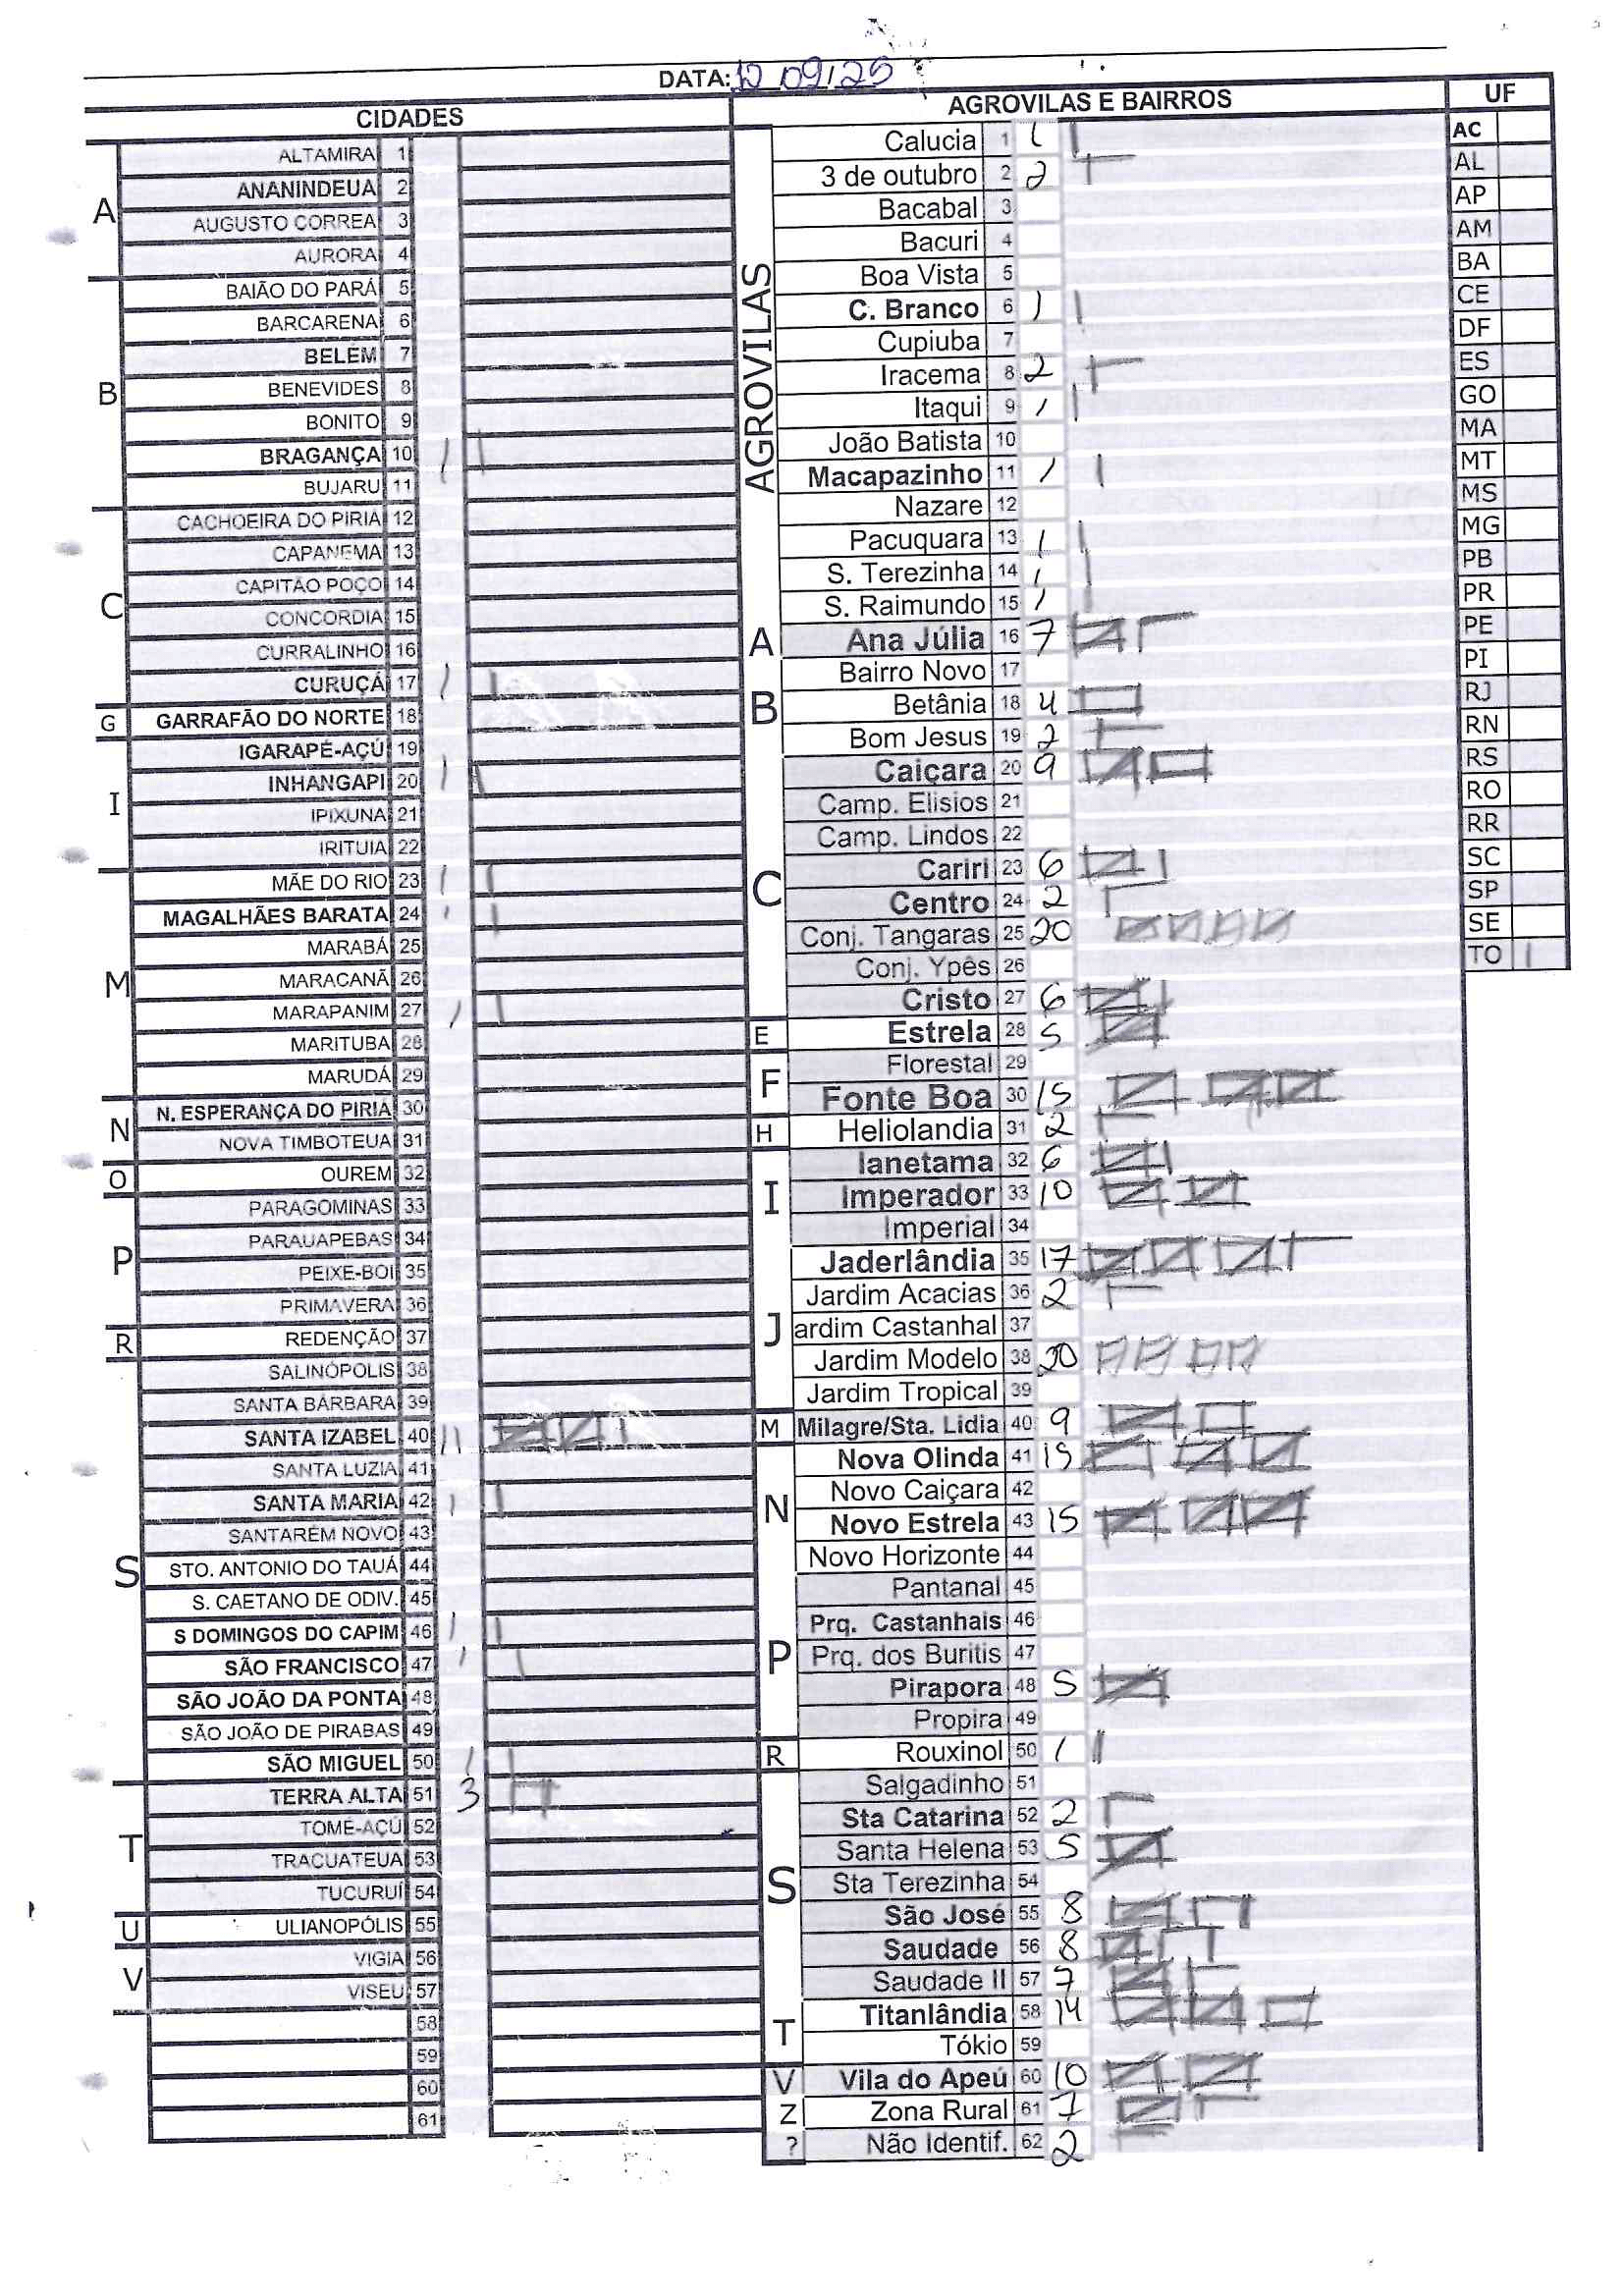 DATA: 12 09/25
CIDADES
A
ALTAMIRA 1
ANANINDEUA 2
AUGUSTO CORREA 3
AURORA 4
B
BAIÃO DO PARÁ 5
BARCARENA 6
BELÉM 7
BENEVIDES 8
BONITO 9
BRAGANÇA 10 1
BUJARU 11
C
CACHOEIRA DO PIRIA 12
CAPANEMA 13
CAPITÃO POÇO 14
CONCORDIA 15
CURRALINHO 16
CURUÇÁ 17 1
G
GARRAFÃO DO NORTE 18
I
IGARAPÉ-AÇÚ 19
INHANGAPI 20 1
IPIXUNA 21
IRITUIA 22
M
MÃE DO RIO 23 1
MAGALHÃES BARATA 24 1
MARABÁ 25
MARACANÃ 26
MARAPANIM 27 1
MARITUBA 28
MARUDÁ 29
N
N. ESPERANÇA DO PIRIÁ 30
NOVA TIMBOTEUA 31
O
OUREM 32
P
PARAGOMINAS 33
PARAUAPEBAS 34
PEIXE-BOI 35
PRIMAVERA 36
R
REDENÇÃO 37
S
SALINÓPOLIS 38
SANTA BÁRBARA 39
SANTA IZABEL 40 11
SANTA LUZIA 41
SANTA MARIA 42 1
SANTARÉM NOVO 43
STO. ANTONIO DO TAUÁ 44
S. CAETANO DE ODIV. 45
S DOMINGOS DO CAPIM 46 1
SÃO FRANCISCO 47 1
SÃO JOÃO DA PONTA 48
SÃO JOÃO DE PIRABAS 49
SÃO MIGUEL 50 1
T
TERRA ALTA 51 3
TOMÉ-AÇÚ 52
TRACUATEUA 53
TUCURUÍ 54
U
ULIANOPÓLIS 55
V
VIGIA 56
VISEU 57
58
59
60
61
AGROVILAS E BAIRROS
AGROVILAS
Calucia 1 1
3 de outubro 2 2
Bacabal 3
Bacuri 4
Boa Vista 5
C. Branco 6 1
Cupiuba 7
Iracema 8 2
Itaqui 9 1
João Batista 10
Macapazinho 11 1
Nazare 12
Pacuquara 13 1
S. Terezinha 14 1
S. Raimundo 15 1
A
Ana Júlia 16 7
B
Bairro Novo 17
Betânia 18 4
Bom Jesus 19 2
C
Caiçara 20 9
Camp. Elisios 21
Camp. Lindos 22
Cariri 23 6
Centro 24 2
Conj. Tangaras 25 20
Conj. Ypês 26
Cristo 27 6
E
Estrela 28 5
F
Florestal 29
Fonte Boa 30 15
H
Heliolandia 31 2
I
Ianetama 32 6
Imperador 33 10
Imperial 34
J
Jaderlândia 35 17
Jardim Acacias 36 2
ardim Castanhal 37
Jardim Modelo 38 20
Jardim Tropical 39
M
Milagre/Sta. Lidia 40 9
N
Nova Olinda 41 15
Novo Caiçara 42
Novo Estrela 43 15
Novo Horizonte 44
P
Pantanal 45
Prq. Castanhais 46
Prq. dos Buritis 47
Pirapora 48 5
Propira 49
R
Rouxinol 50 1
S
Salgadinho 51
Sta Catarina 52 2
Santa Helena 53 5
Sta Terezinha 54
São José 55 8
Saudade 56 8
Saudade II 57 7
T
Titanlândia 58 14
Tókio 59
V
Vila do Apeú 60 10
Z
Zona Rural 61 7
?
Não Identif. 62 2
UF
AC
AL
AP
AM
BA
CE
DF
ES
GO
MA
MT
MS
MG
PB
PR
PE
PI
RJ
RN
RS
RO
RR
SC
SP
SE
TO 1